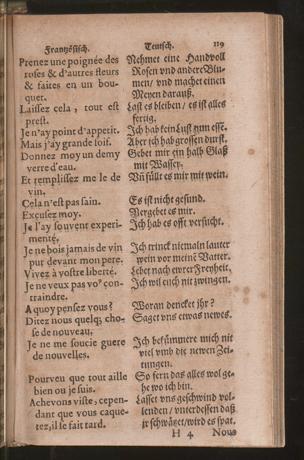 Frantzösisch. Teutsch. 119
Prenez une poignée des Nehmet eine Handvoll
roses & d'autres fleurs Rosen vnd andere Blu-
& faites en un bou- men/ vnd machet einen
quet. Meyen darauß.
Laissez cela, tout est Last es bleiben/ es ist alles
prest. fertig.
Je n'ay point d'appetit. Ich hab kein Lust zum esse.
Mais j'ay grande soif. Aber ich hab grossen durst.
Donnez moy un demy Gebet mir ein halb Glaß
verre d'eau. mit Wasser.
Et remplissez me le de Vñ füllt es mir mit wein.
vin.
Cela n'est pas sain. Es ist nicht gesund.
Excusez moy. Vergebet es mir.
Je l'ay souvent experi- Ich hab es offt versucht.
menté.
Je ne bois jamais de vin Ich trinck niemaln lauter
pur devant mon pere. wein vor meinē Vatter.
Vivez à vostre liberté. Lebet nach ewrer Freyheit.
Je ne veux pas vo9 con- Ich wil euch nit zwingen.
traindre.
A quoy pensez vous? Woran dencket jhr?
Ditez nous quelq; cho- Saget vns etwas newes.
se de nouveau.
Je ne me soucie guere Ich bekümmere mich nit
de nouvelles. viel vmb die newen Zei-
tungen.
Pourveu que tout aille So fern das alles wol ge-
bien ou je suis. he wo ich bin.
Achevons viste, cepen- Lasset vns geschwind vol-
dant que vous caque- lenden/ vnterdessen daß
tez, il se fait tard. jr schwätzet/ wird es spat.
H 4 Nous